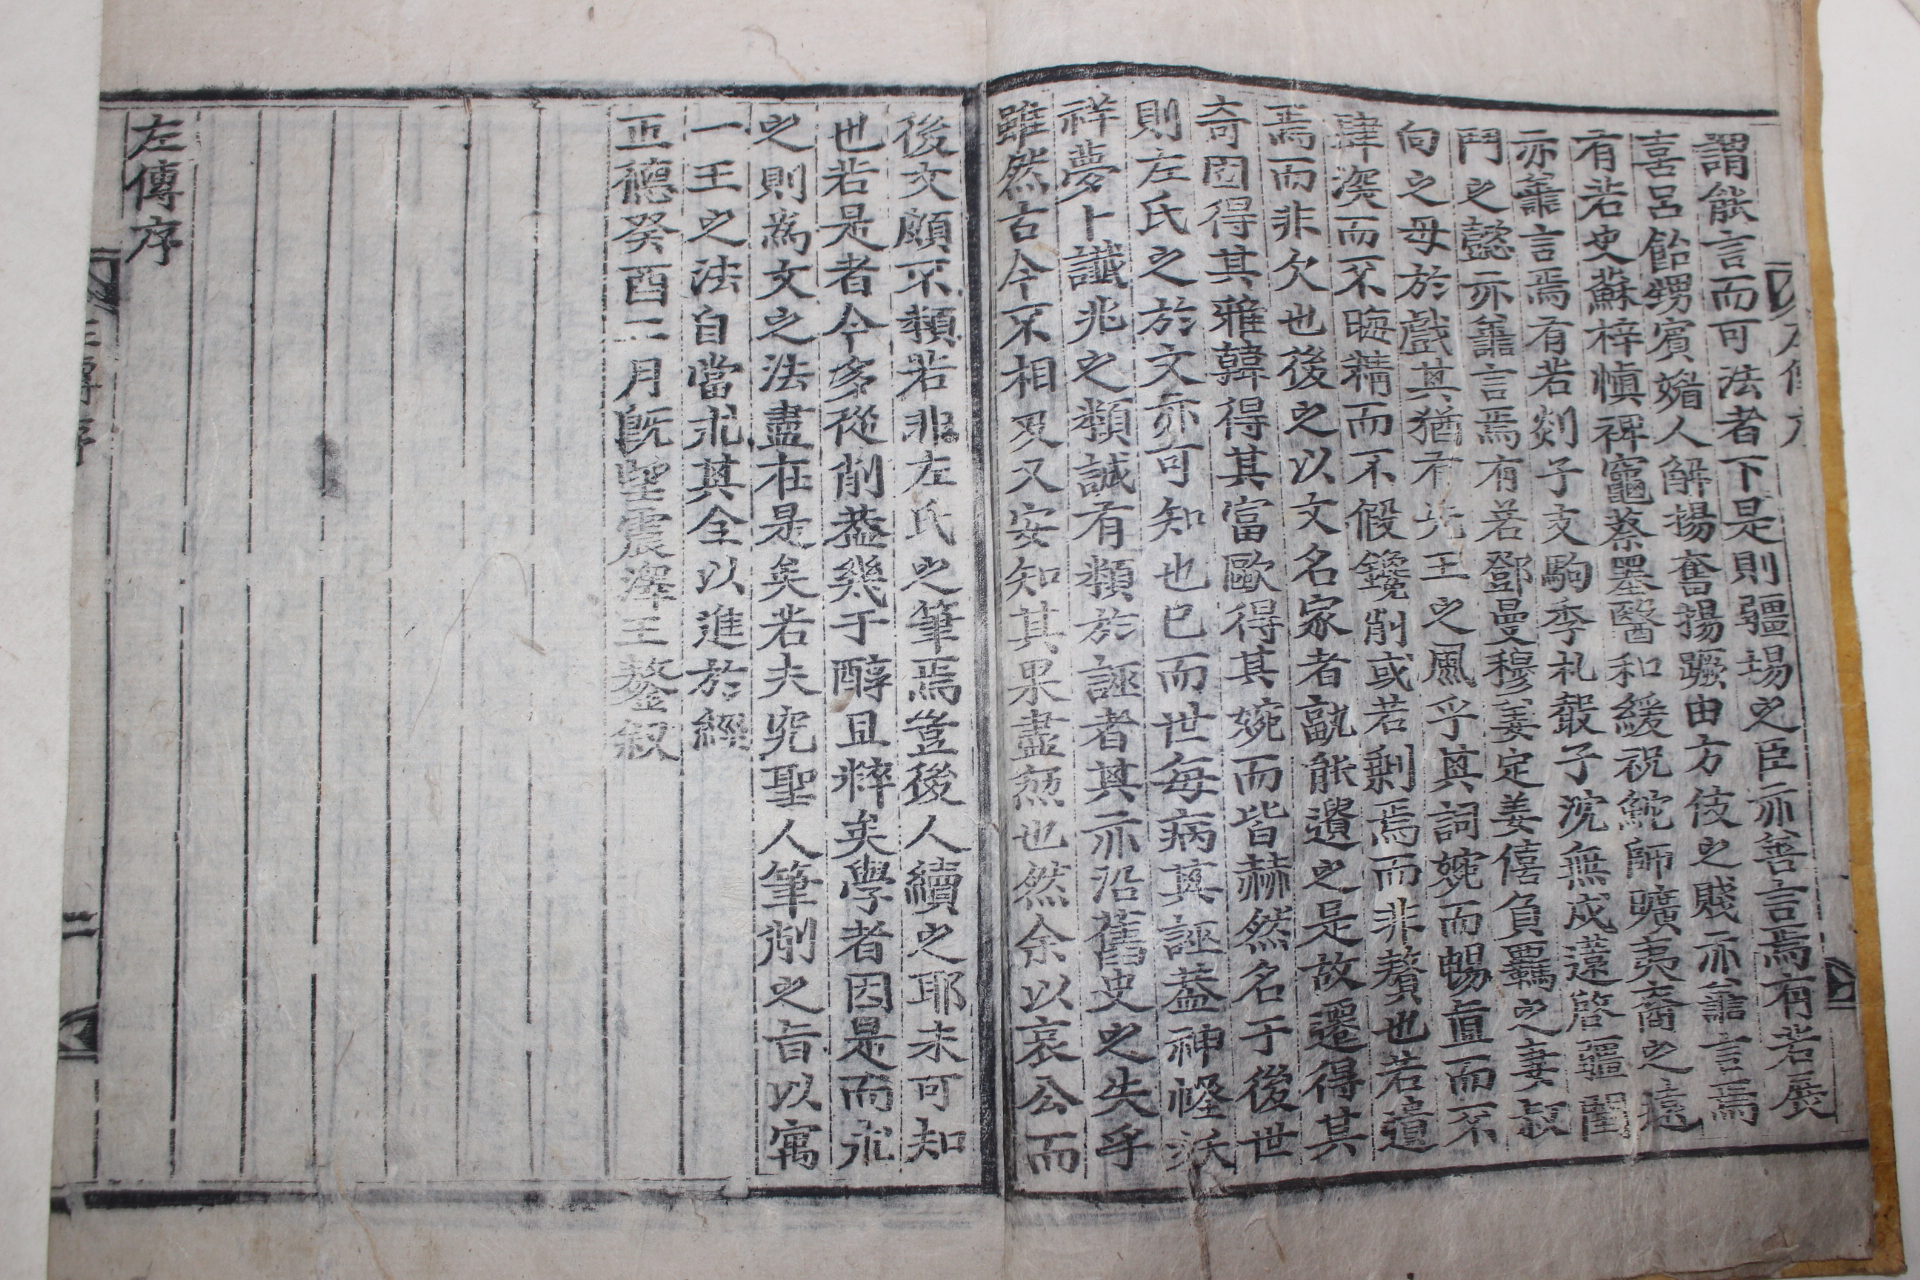 謂能言而可法者下是則疆埸之臣亦善言焉有若展
喜呂飴甥賓媚人解揚奮揚蹶由方伎之賤亦善言焉
有若史蘇梓愼裨竈蔡墨醫和緩祝鮀師曠夷裔之遠
亦善言焉有若郯子支駒季札聲子沈無戍薳啓疆閨
門之懿亦善言焉有若鄧曼穆姜定姜僖負羈之妻叔
向之母於戲其猶有先王之風乎其詞婉而暢直而不
肆深而不晦精而不假鑱削或若剩焉而非贅也若遺
焉而非欠也後之以文名家者孰能遺之是故遷得其
奇固得其雅韓得其富歐得其婉而皆赫然名于後世
則左氏之於文亦可知也已而世每病其誣蓋神怪妖
祥夢卜讖兆之類誠有類於誣者其亦沿舊史之失乎
雖然古今不相及又安知其果盡無也然余以哀公而
後文頗不類若非左氏之筆焉豈後人續之耶未可知
也若是者今多從削蓋幾于醇且粹矣學者因是而求
之則爲文之法盡在是矣若夫究聖人筆削之旨以寓
一王之法自當求其全以進於經
正德癸酉二月旣望震澤王鏊叙
左傳序
左傳序 二